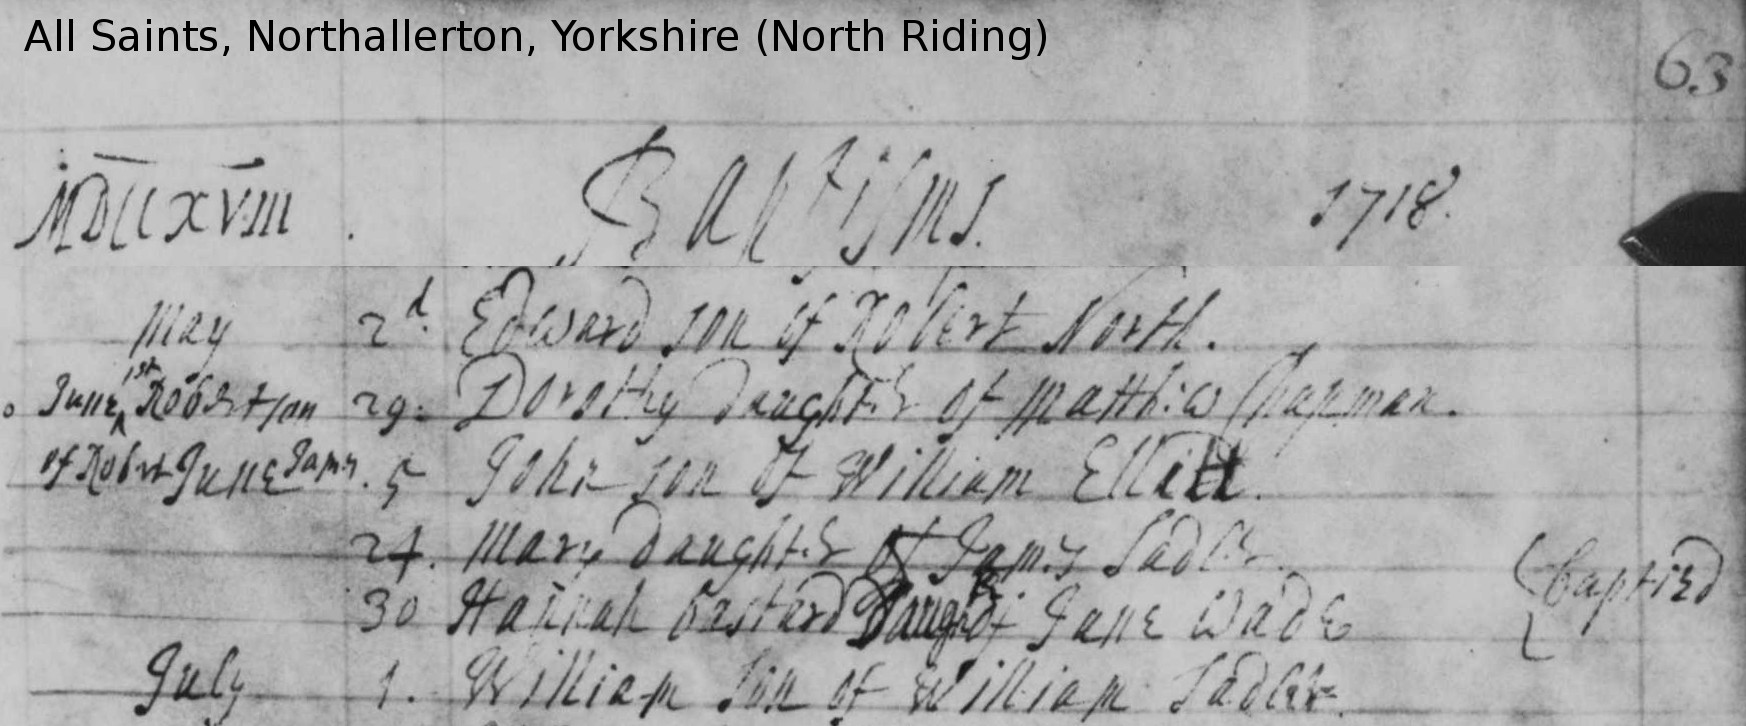 All Saints, Northallerton, Yorkshire (North Riding)
63
MDCCXVIII. Baptisms. 1718.
May 2d. Edward son of Robert North.
June 1st Robert son 29. Dorothy Daughter of Matthew Chapman.
of Robert June 5 John son of William Elliott.
24. Mary Daughter of James Sadler.
30 Hannah bastard Daughtr of Jane Wade
Baptized
July 1. William Son of William Sadler.